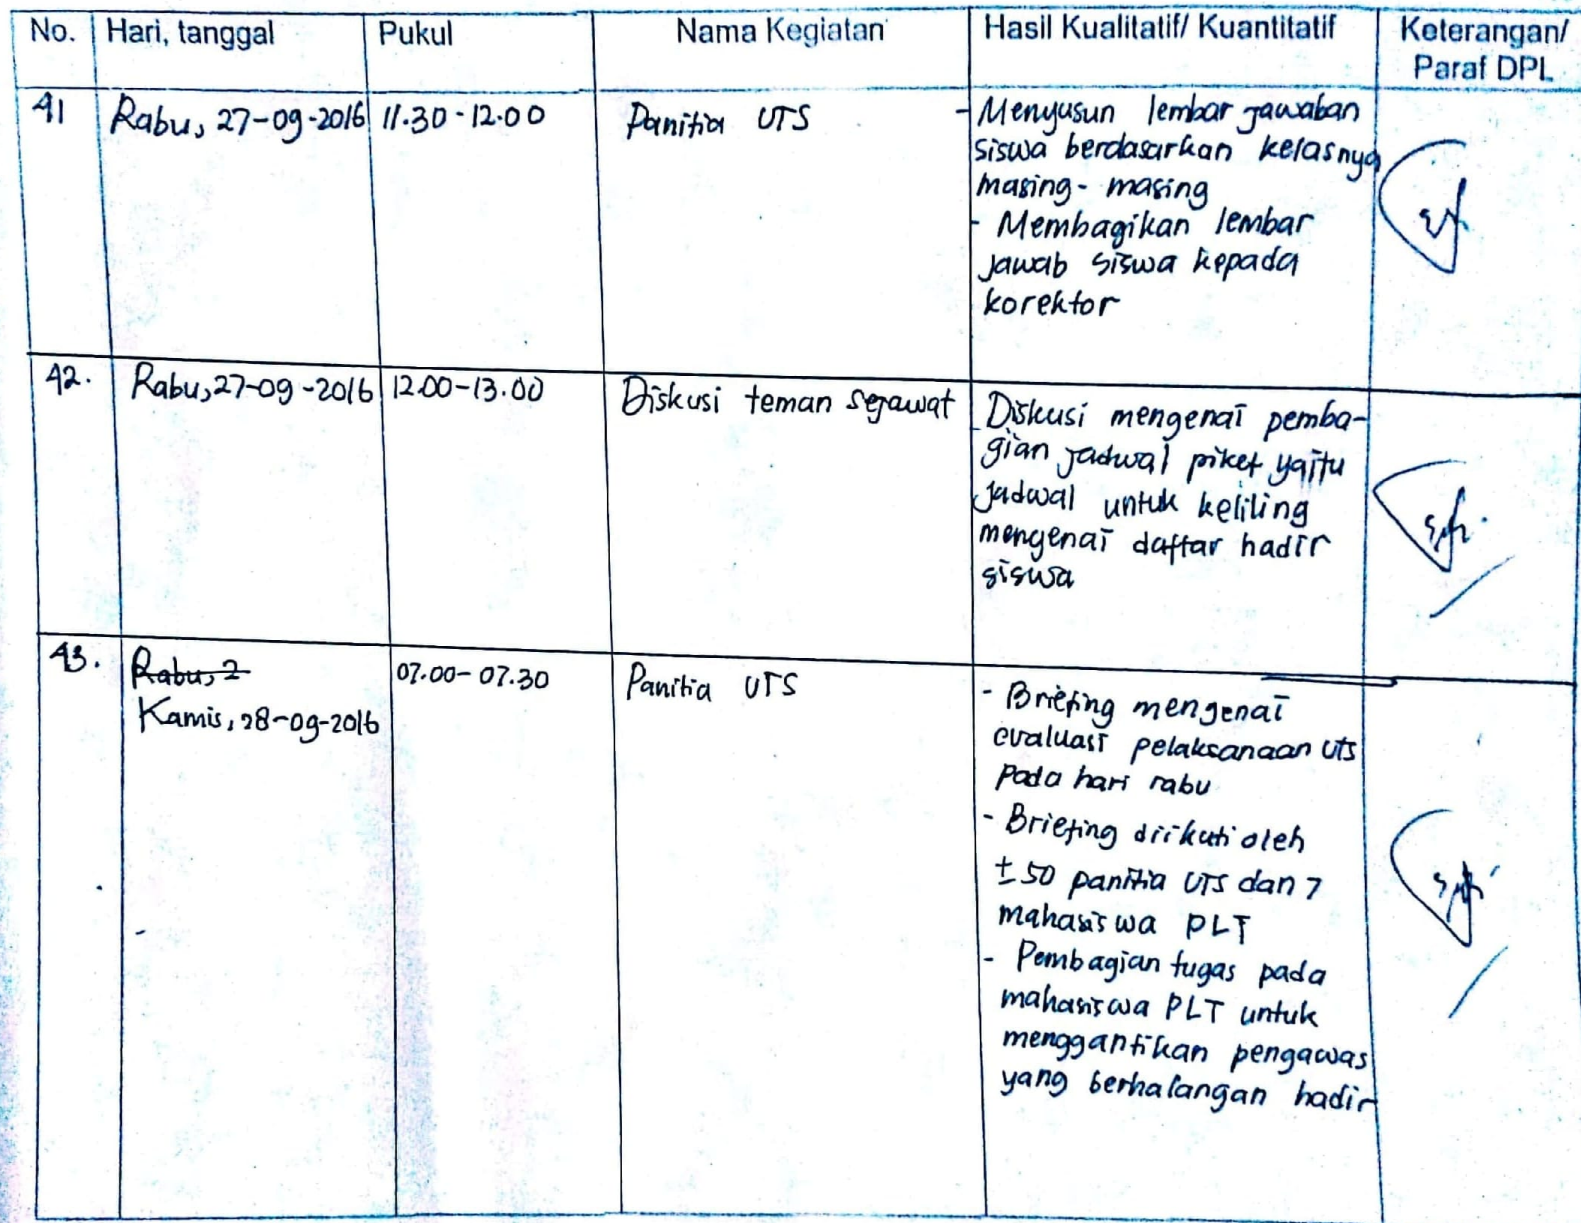 No. Hari, tanggal Pukul Nama Kegiatan Hasil Kualitatif/ Kuantitatif Keterangan/
Paraf DPL
41 Rabu, 27-09-2016 11.30 - 12.00 Panitia UTS - Menyusun lembar jawaban
siswa berdasarkan kelasnya
masing- masing
- Membagikan lembar
jawab siswa kepada
korektor
42. Rabu, 27-09-2016 12.00-13.00 Diskusi teman sejawat Diskusi mengenai pemba-
gian jadwal piket yaitu
jadwal untuk keliling
mengenai daftar hadir
siswa
43. Rabu, 2 07.00-07.30 Panitia UTS - Briefing mengenai
Kamis, 28-09-2016
evaluasi pelaksanaan uts
pada hari rabu
- Briefing diikuti oleh
± 50 panitia UTS dan 7
mahasiswa PLT
- Pembagian tugas pada
mahasiswa PLT untuk
menggantikan pengawas
yang berhalangan hadir